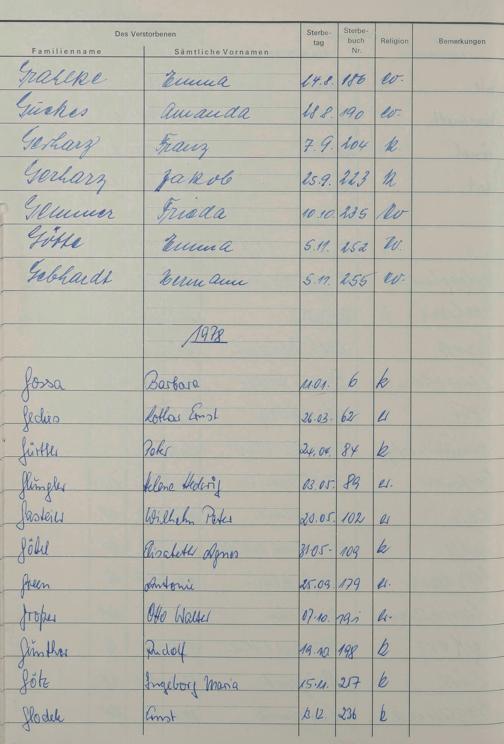 Des Verstorbenen Sterbe- tag Sterbe- buch Nr. Religion Bemerkungen
Familienname Sämtliche Vornamen
Grahlke Emma 14.8. 186 ev.
Guckes Amanda 28.8. 190 ev.
Gerharz Franz 7.9. 204 k
Gerharz Jakob 25.9. 223 k
Gemmer Frieda 10.10. 235 ev
Götte Emma 5.11. 252 ev.
Gebhardt Hermann 5.11. 255 ev.
1978
Gossa Barbara 11.01. 6 k
Lothar Ernst 26.03. 62 ev
Gürtler Peter 24.04. 84 k
Helene Hedwig 03.05. 89 ev.
Wilhelm Peter 20.05. 102 ev
Göbel Elisabeth Agnes 31.05. 109 k
Green Antonie 25.09. 179 ev.
Otto Walter 07.10. ev.
Günther Rudolf 19.10. 198 k
Götz Ingeborg Maria 15.11. 217 k
Glodek Ernst 12. 236 k